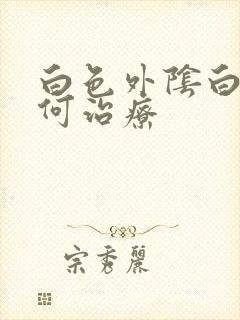 白色外陰白
何治療
宗秀麗